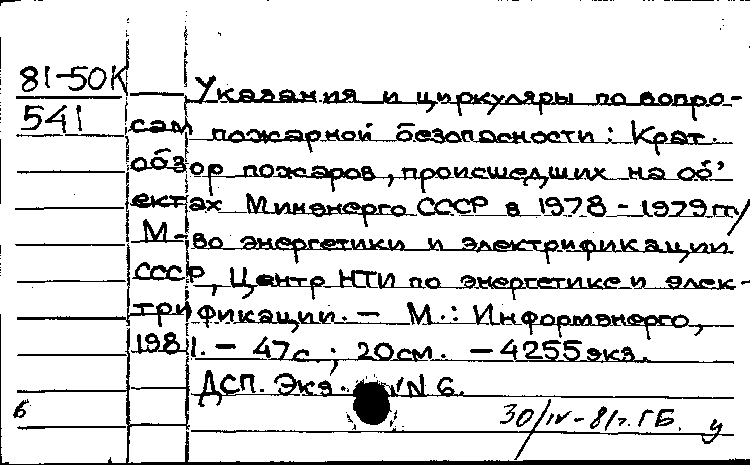 81-50К
541
Указания и циркуляры по вопро-
сам пожарной безопасности: Крат.
обзор пожаров, происшедших на об'
ектах Минэнерго СССР в 1978 - 1979 гг/
М-во энергетики и электрификации
СССР, Центр НТИ по энергетике и элек-
трификации. - М.: Информэнерго,
1981. - 47 с. ; 20 см. - 4255 экз.
ДСП. Экз. N 6.
Б 30/IV-81г. ГБ. у